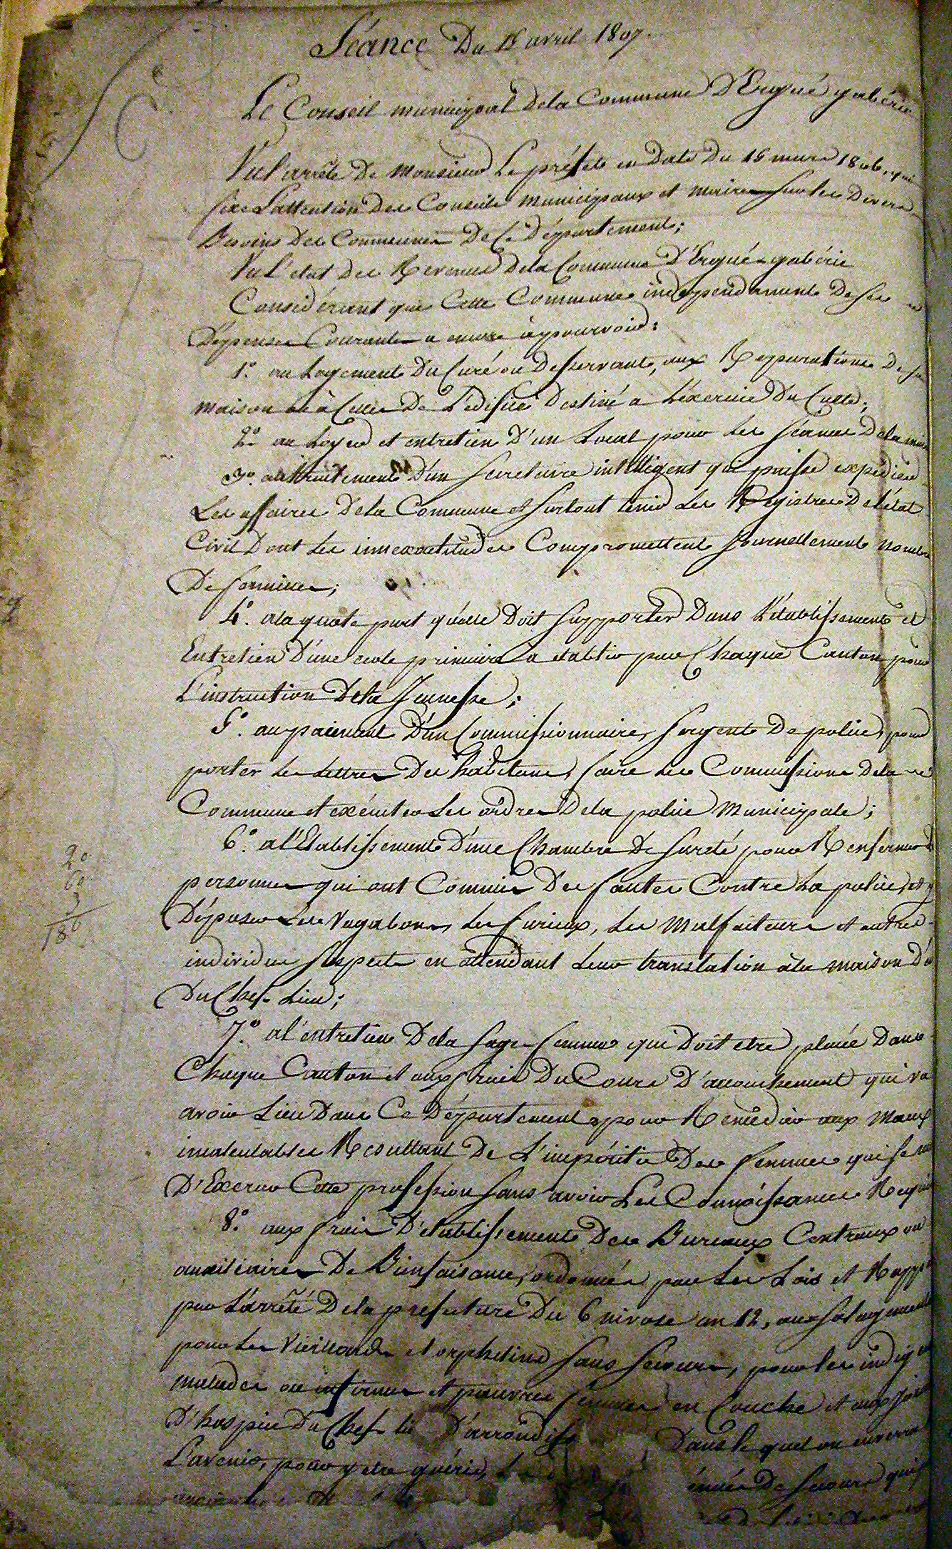 Séance Du 15 avril 1807.
Le Conseil municipal dela Commune D'Ergué gabéric
Vu l'arrêté De monsieur Le préfet en Date Du 15 mars 1806, qui
fixe L'attention Des Conseils municipaux et maires sur les Divers
Besoins Des Communes De Ce Département;
Vu l'état des Revenus Dela Commune D'Ergué-gabéric
Considérant que Cette Commune indépendamment De ses
Dépenses Courantes a encore à pourvoir:
1.° au Logement Du Curé ou Desservant, aux Réparations De sa
maison et à Celles De L'édifice Destiné a L'éxercice Du Culte;
2.° au Loyer et entretien D'un Local pour Les séances Dela
3.° au traitement D'un secretaire intelligent qui puisse expédier
Les affaires Dela Commune et surtout tenir Les Registres De l'état
Civil Dont Les inexactitudes Compromettent journellement nombre
De familles;
4.° ala quote part qu'elle Doit supporter Dans L'établissement et
Entretien D'une école primaire a établir par Chaque Canton pour
L'instruction Dela Jeunesse;
5.° au paiement D'un Commissionnaire, sergent De police, pour
porter Les Lettres Des habitans, faire Les Commissions Dela
Commune et exécuter Les ordres Dela police Municipale;
6.° a l'Etablissement D'une Chambre De sureté pour Renfermer
personnes qui ont Commis Des fautes Contre La police, et y
Déposer Les Vagabons, Les furieux, Les Malfaiteurs et autres
individus suspects en attendant Leur translation àla maison D'
Du Chef-Lieu;
7.° a l'entretien Dela sage-femme qui Doit etre placée Dans
Chaque Canton et aux frais Du Cours D'accouchement qui va
avoir Lieu Dans Ce Département pour Remédier aux Maux
incalculables Résultant De L'impéritie Des femmes qui se
D'Exercer Cette profession sans avoir Les Connoissances
8.° aux frais D'établissement Des Bureaux Centraux ou
auxiliaires De Bienfaisance, ordonnés par Les Lois et
par L'arrêté Dela prefecture Du 6 nivose an 12, au soulagement
pour Les Vieillards et orphelins sans secours, pour les
malades ou infirmes et pauvres femmes en Couche et aux
D'hospice Du Chef-lieu D'arrondiss Dans le quel on enverra
L'avenir, pour y etre guéris, De secours qui
2°
6°
3
18°